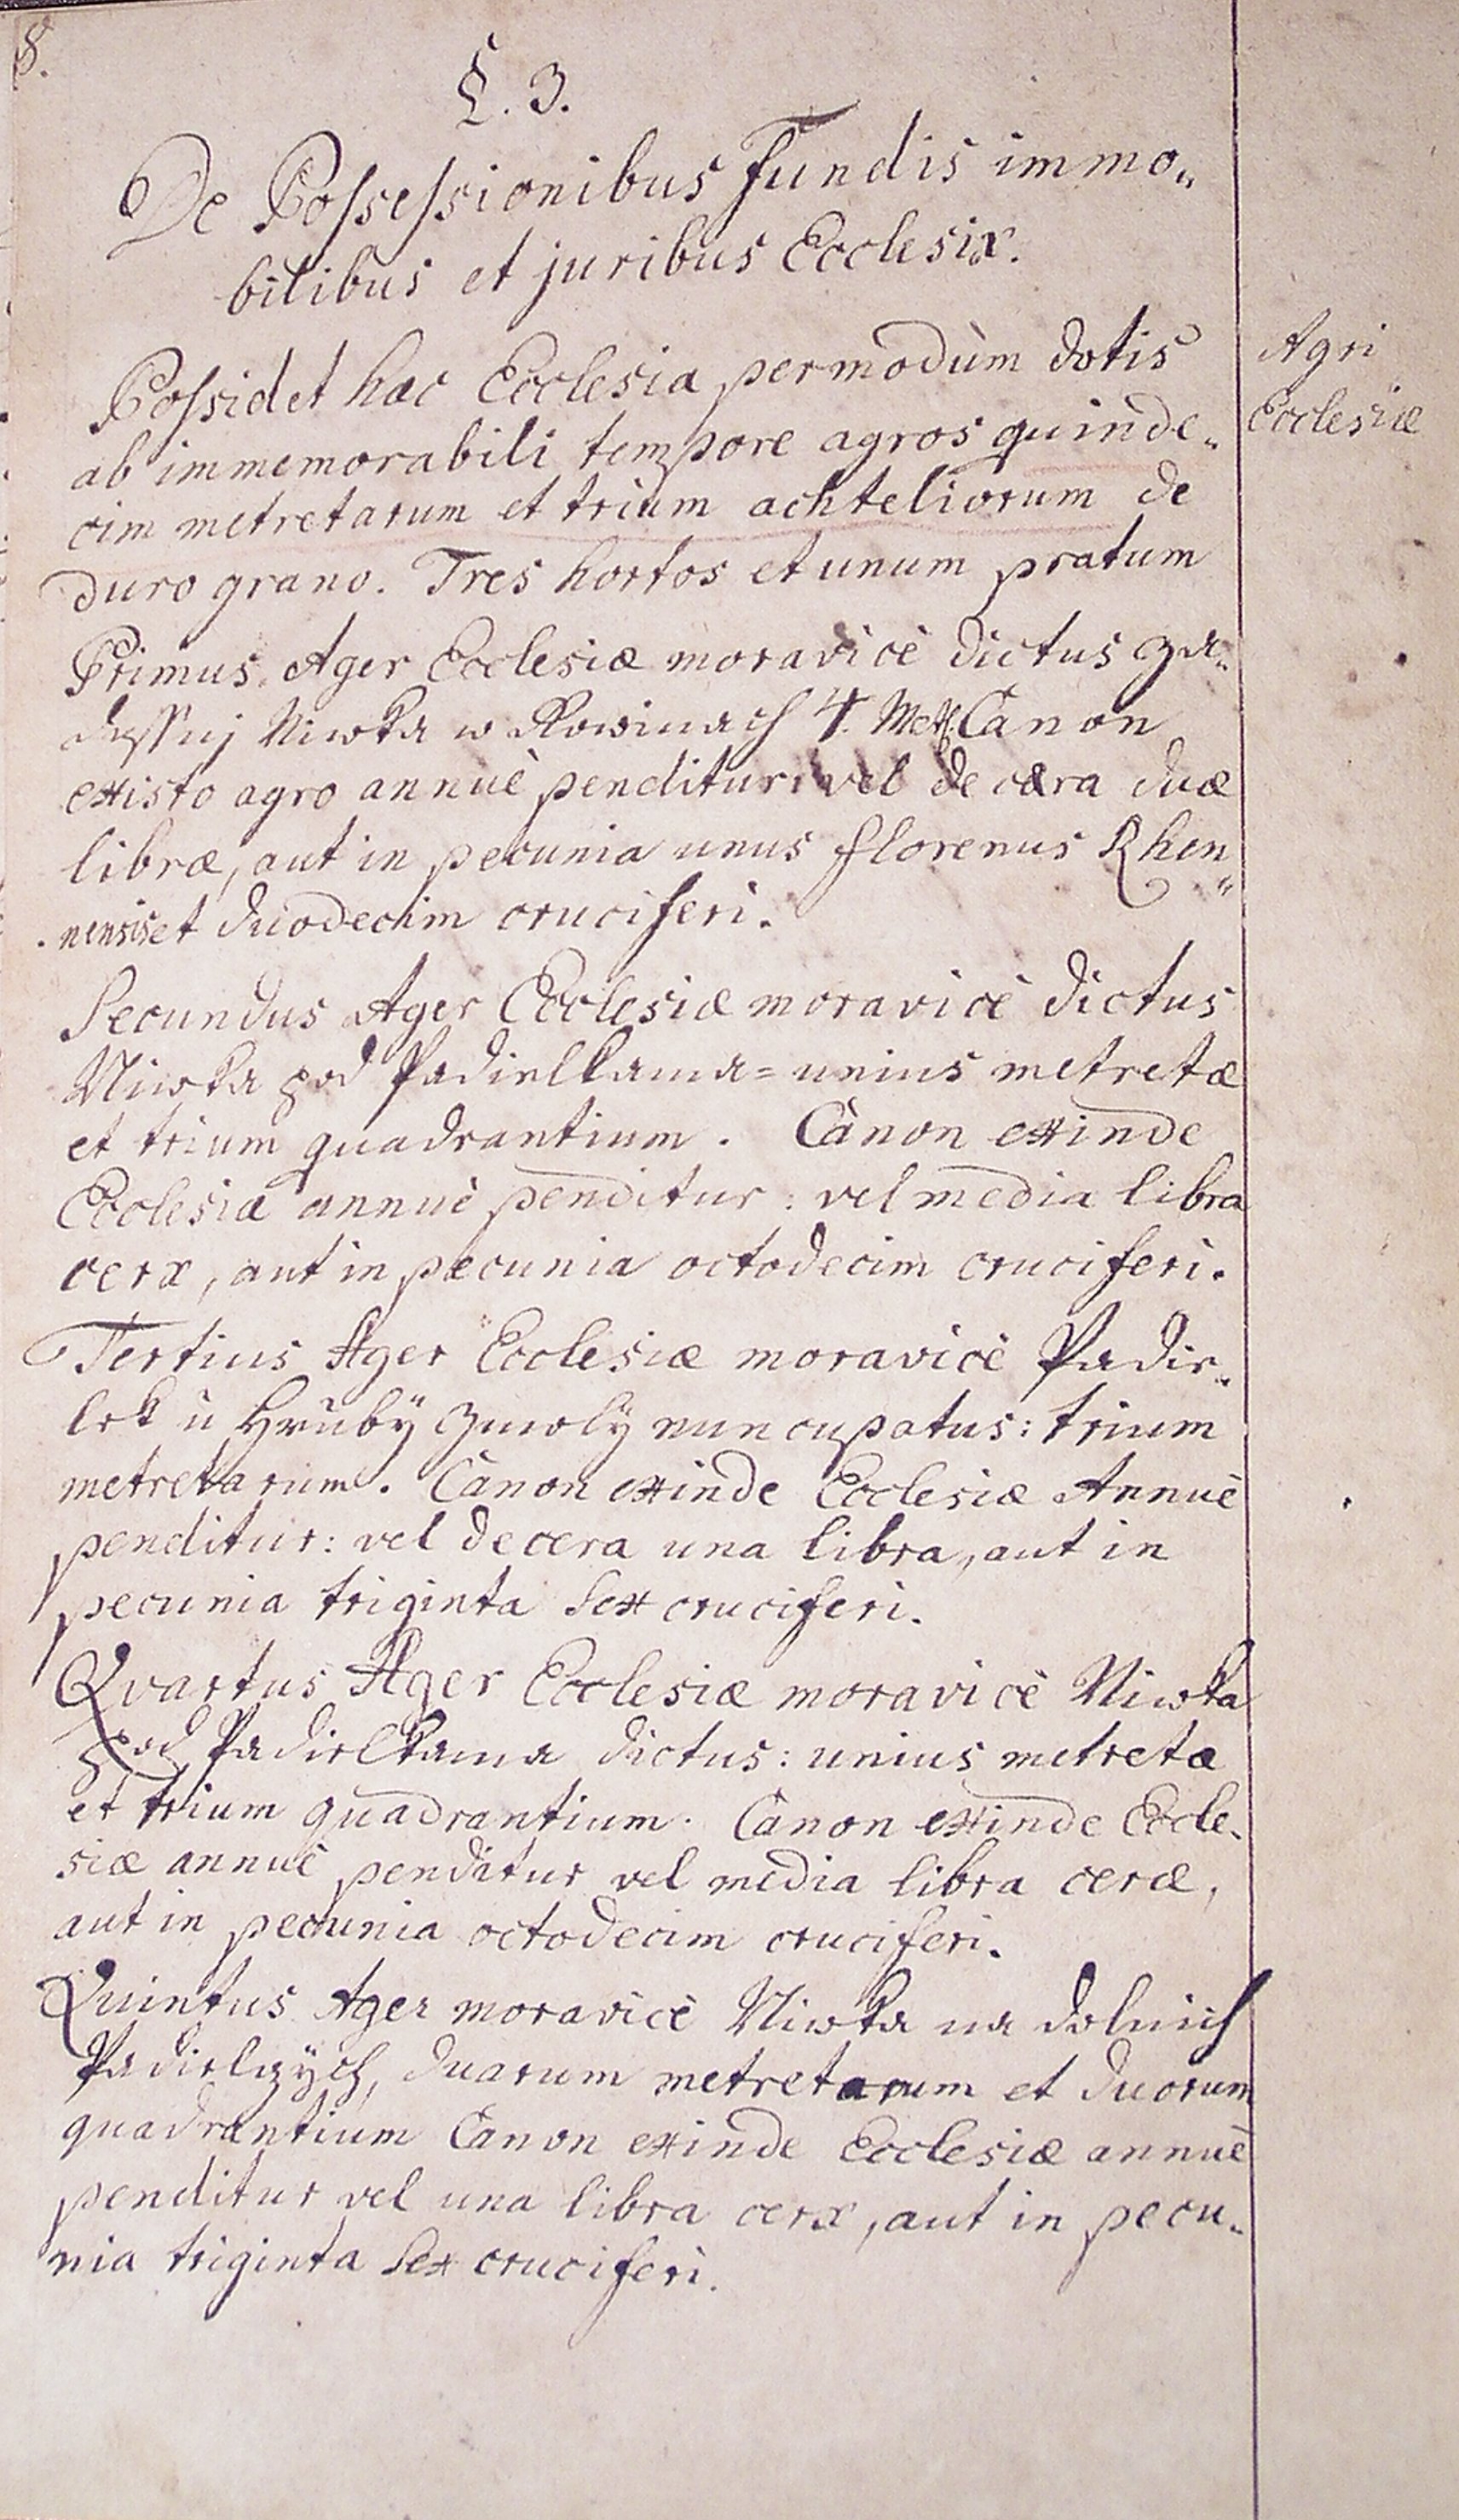 8.
§. 3.
De Possessionibus Fundis immo„
bilibus et juribus Ecclesiæ.
Agri
Ecclesiæ
Possidet hæc Ecclesia permodùm dotis
ab immemorabili tempore agros quinde„
cim metretarum et trium achteliorum de
duro grano. Tres hortos et unum pratum
Primus Ager Ecclesiæ moravicè dictus za„
dussnj Niwka w Rowinach 4. Met. Canon
existo agro annuè penditur: vel de cæra duæ
libræ, aut in pecunia unus florenus Rhen„
nensis et duodecim cruciferi.
Secundus Ager Ecclesiæ moravicè dictus
Niwka pod Padielkama = unius metretæ
et trium quadrantium. Cànon exinde
Ecclesiæ annuè penditur: vel media libra
ceræ, aut in pecunia octodecim cruciferi.
Tertius Ager Ecclesiæ moravicè Padie„
lek ù Hrùbÿ Zmolÿ nuncupatus: trium
metretarum. Cànon exinde Ecclesiæ Annuè
penditur: vel de cera una libra, aut in
pecunia triginta sex cruciferi.
Qvartus Ager Ecclesiæ moravicè Niwka
pod Padielkama dictus: unius metretæ
et trium quadrantium. Cànon exinde Eccle„
siæ annuè penditur vel media libra ceræ,
aut in pecunia octodecim cruciferi.
Quintus Ager moravicè Niwka na dolnich
Padielzÿch, duarum metretarum et duorum
quadrantium Canon exinde Ecclesiæ annuè
penditur vel una libra ceræ, aut in pecu„
nia triginta sex cruciferi.